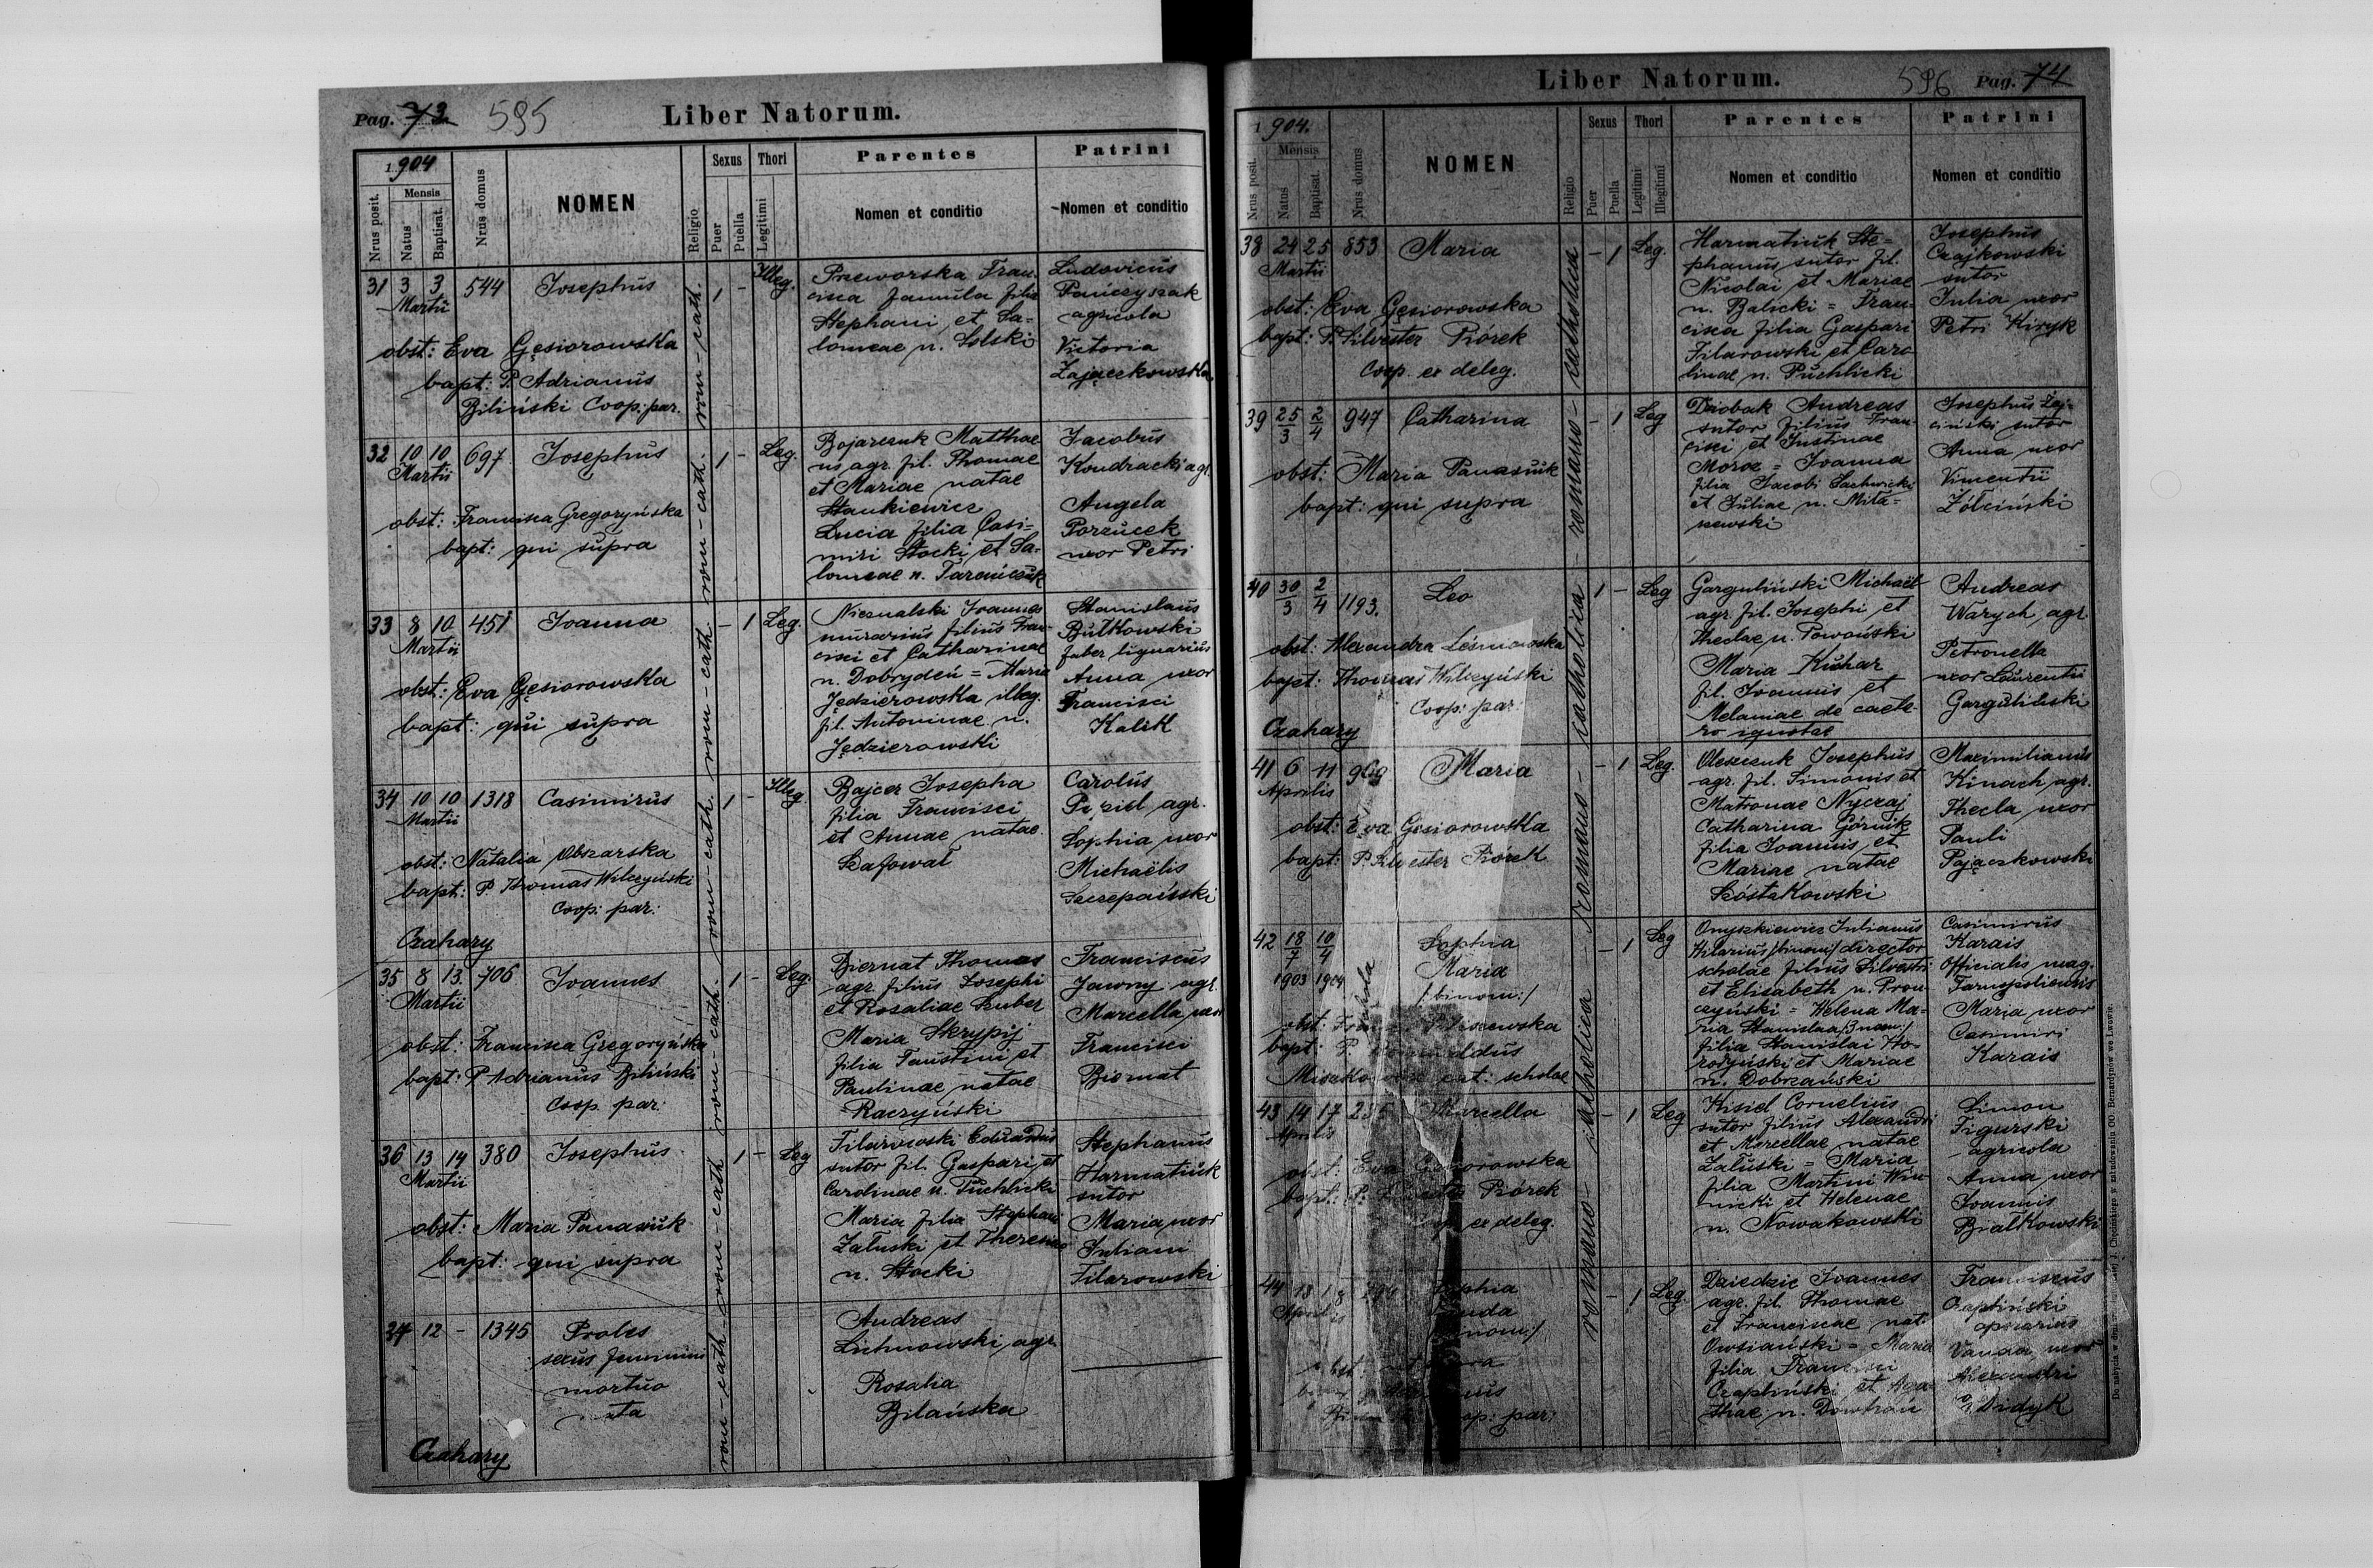 Pag. 73 595 Liber Natorum.
1904
Nrus posit.
Mensis
Natus
Baptisat.
Nrus domus
NOMEN
Religio
Sexus
Puer
Puella
Thori
Legitimi
Parentes
Nomen et conditio
Patrini
Nomen et conditio
rom-cath. rom-cath. rom-cath. rom-cath. rom-cath. rom-cath. rom-cath. rom-cath.
31 3 3 544 Josephus 1 - Illeg.
Martii
obst: Eva Gęsiorowska
bapt: P. Adrianus
Biliński Coop. par.
Przeworska Fran
cisca famula filia
Stephani et Sa-
lomeae n. Solski
Ludovicus
Pańczyszak
agricola
Victoria
Zajączkowska
32 10 10 697 Josephus 1 - Leg.
Martii
obst: Francisca Gregoryńska
bapt: qui supra
Bojarczuk Matthae
us agr. fil. Thomae
et Mariae natae
Stankiewicz
Lucia filia Casi-
miri Stocki et Sa-
lomeae n. Tarańczuk
Jacobus
Kondracki agr.
Angela
Porzucek
uxor Petri
33 8 10 451 Joanna - 1 Leg.
Martii
obst: Eva Gęsiorowska
bapt: qui supra
Nieznalski Joannes
murarius filius Fran-
cisci et Catharinae
n. Dobrydeń = Maria
Jędzierowska illeg.
fil. Antoninae n.
Jędzierowski
Stanislaus
Butkowski
faber lignarius
Anna uxor
Francisci
Kalek
34 10 10 1318 Casimirus 1 - Illeg
Martii
obst: Natalia Obszarska
bapt: P. Thomas Wilczyński
Coop: par:
Czahary
Bajcer Josepha
filia Francisci
et Annae natae
Szafował
Carolus
agr.
Sophia uxor
Michaëlis
Szczepański
35 8 13 706 Joannes 1 - Leg.
Martii
obst: Francisca Gregoryńska
bapt: P. Adrianus Biliński
Coop. par:
Biernat Thomas
agr. filius Josephi
et Rosaliae Szuber
Maria Skrypij
filia Faustini et
Paulinae natae
Raczyński
Franciscus
Jawny agr.
Marcella uxor
Francisci
Biernat
36 13 14 380 Josephus 1 - Leg
Martii
obst: Maria Panasiuk
bapt: qui supra
Filarowski Eduardus
sutor fil. Gaspari et
Carolinae n. Puchlicki
Maria filia Stephani
Załuski et Theresiae
n. Stocki
Stephanus
Harmatiuk
sutor
Maria uxor
Juliani
Filarowski
37 12 - 1345 Proles
sexus feminini
mortuo
nata
Czahary
Andreas
Lichnowski agr.
Rosalia
Bilańska
Liber Natorum. 596 Pag. 74
1904.
Nrus posit.
Mensis
Natus
Baptisat.
Nrus domus
NOMEN
Religio
Sexus
Puer
Puella
Thori
Legitimi
Illegitimi
Parentes
Nomen et conditio
Patrini
Nomen et conditio
romano - catholica - romano - catholica - romano - catholica
38 24 25 853 Maria - 1 Leg.
Martii
obst: Eva Gęsiorowska
bapt: P. Silvester Piórek
Coop. ex deleg.
Harmatiuk Ste-
phanus sutor fil.
Nicolai et Mariae
n. Balicki = Fran-
cisca filia Gaspari
Filarowski et Caro
linae n. Puchlicki
Josephus
Czajkowski
sutor
Julia uxor
Petri Kiryk
39 25/3 2/4 947 Catharina - 1 Leg
obst: Maria Panasiuk
bapt: qui supra
Dziobak Andreas
sutor filius Fran-
cisci et Justinae
Moroz = Joanna
filia Jacobi Sachwicki
et Juliae n. Mita-
szewski
Josephus Zej-
ciński sutor
Anna uxor
Vincentii
Żółciński
40 30/3 2/4 1193. Leo 1 - Leg
obst: Alexandra Leśniowska
bapt: Thomas Wilczyński
Coop: par:
Czahary
Garguliński Michaël
agr. fil. Josephi et
Theclae n. Powoński
Maria Kuhar
fil. Joannis et
Melaniae de caete-
ro ignotae
Andreas
Warych agr
Petronella
uxor Laurentii
Garguliński
41 6 11 969 Maria - 1 Leg.
Aprilis
obst: Eva Gęsiorowska
bapt: P. Silvester Piórek
Oleszczuk Josephus
agr. fil. Simonis et
Matronae Nyczaj
Catharina Górnik
filia Joannis et
Mariae natae
Szóstakowski
Maximilianus
Kinach agr.
Thecla uxor
Pauli
Pajączkowski
42 18/7 10/4 schola Sophia - 1 Leg
1903 1904 Maria
/:binom:/
obst:
bapt: P.
scholae
Onyszkiewicz Julianus
Hilarius /:binom:/ director
scholae filius Silvestri
et Elisabeth n. Pron-
czyński = Helena Ma-
ria Stanislaa /:3 nom:/
filia Stanislai Ho-
rodyński et Mariae
n. Dobrzański
Casimirus
Karais
Officialis mag.
Tarnopoliensis
Maria uxor
Casimiri
Karais
43 14 17 Marcella - 1 Leg
Aprilis
obst: Eva Gęsiorowska
bapt: P. Piórek
Coop ex deleg.
Kisiel Cornelius
sutor filius Alexandri
et Marcellae natae
Załuski = Maria
filia Martini Win-
nicki et Helenae
n. Nowakowski
Simon
Figurski
agricola
Anna uxor
Joannis
Białkowski
44 18 Sophia - 1 Leg.
Aprilis
par:
Dziedzic Joannes
agr. fil. Thomae
et Franciscae nat.
Owsiański = Maria
filia Francisci
Czapliński et Aga-
thae n. Dowhań
Franciscus
Czapliński
operarius
Vanda uxor
Alexandri
Didyk